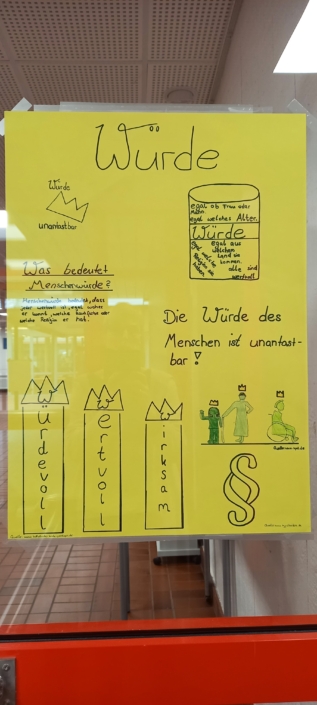 Würde
Würde
unantastbar
egal ob Frau oder
Mann.
egal welches Alter.
Würde
egal aus
welchem
Land sie
kommen.
alle sind
wertvoll
Was bedeutet
Menschenwürde?
Menschenwürde bedeutet, dass
jeder wertvoll ist, egal woher
er kommt, welche Hautfarbe oder
welche Religion er hat.
Die Würde des
Menschen ist unantast-
bar!
Würdevoll
Wertvoll
Wirksam
§